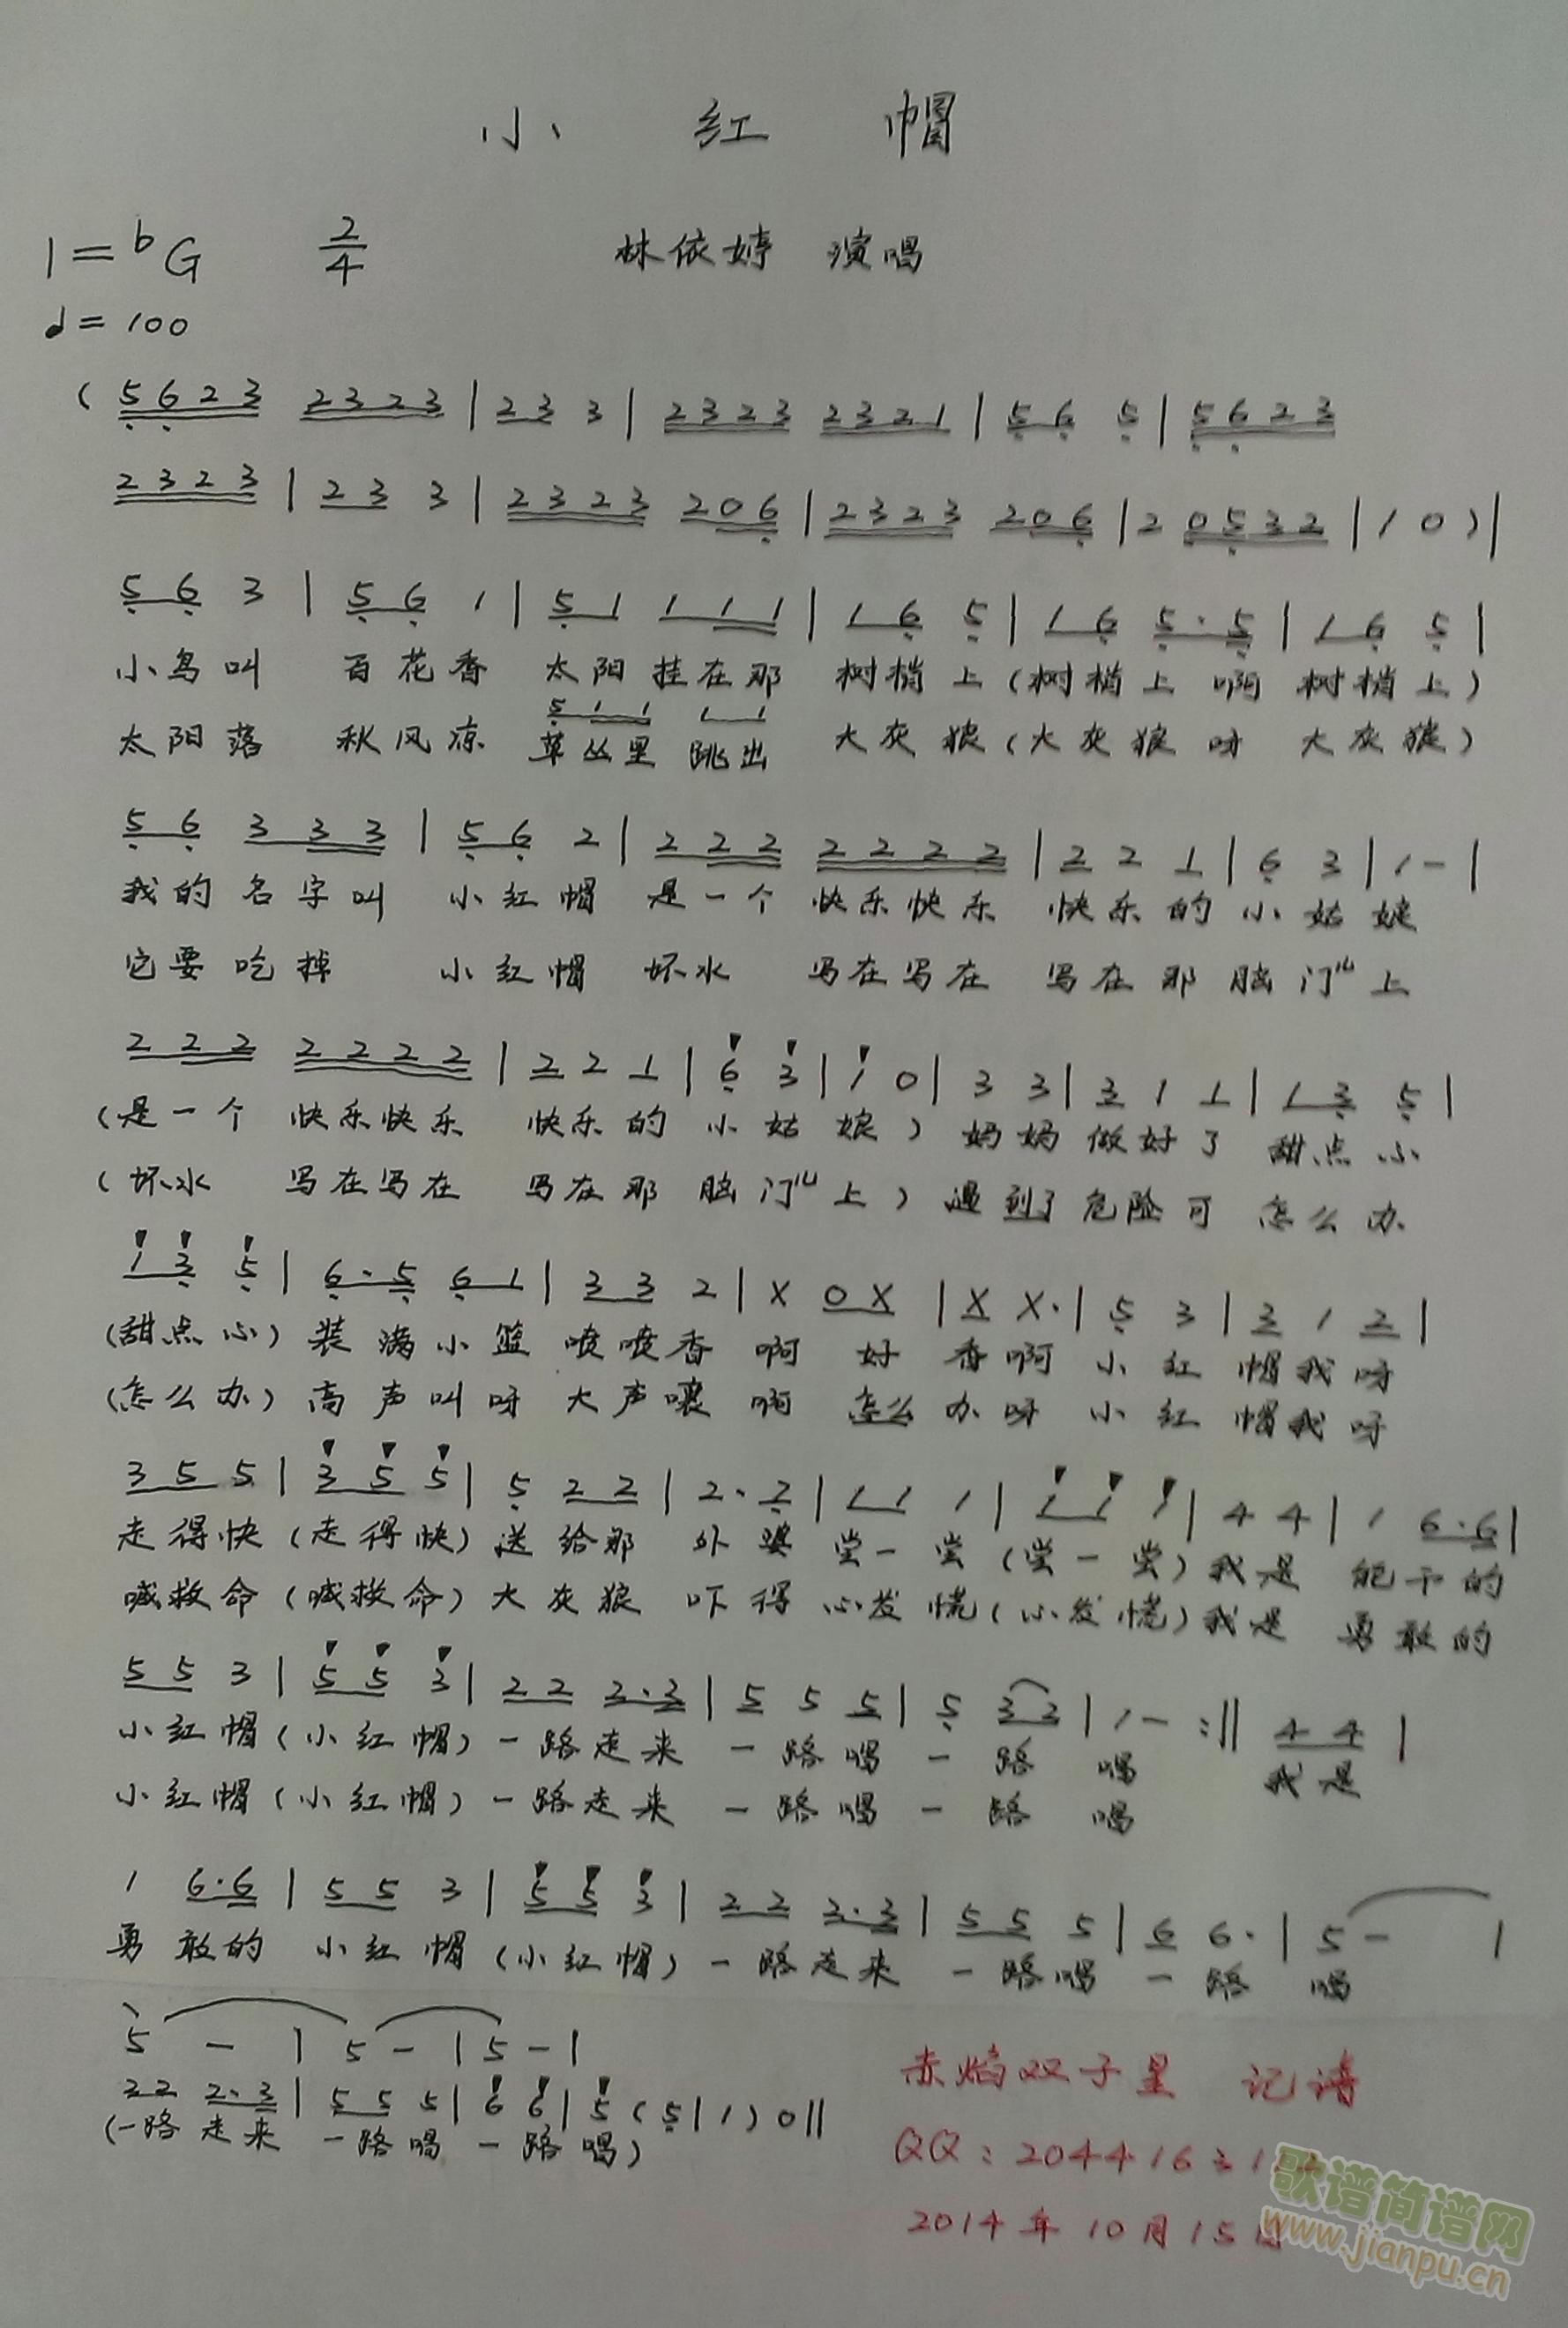 小 红 帽
1=ᵇG 2/4 林依婷 演唱
♩=100
( 5 6 2 3 2 3 2 3 | 2 3 3 | 2 3 2 3 2 3 2 1 | 5 6 5 | 5 6 2 3
2 3 2 3 | 2 3 3 | 2 3 2 3 2 0 6 | 2 3 2 3 2 0 6 | 2 0 5 3 2 | 1 0 ) |
5 6 3 | 5 6 1 | 5 1 1 1 1 | 1 6 5 | 1 6 5 · 5 | 1 6 5 |
小鸟叫 百花香 太阳挂在那 树梢上(树梢上 啊 树梢上)
5 1 1 1 1
太阳落 秋风凉 草丛里 跳出 大灰狼(大灰狼 呀 大灰狼)
5 6 3 3 3 | 5 6 2 | 2 2 2 2 2 2 2 | 2 2 1 | 6 3 | 1 - |
我的名字叫 小红帽 是一个 快乐快乐 快乐的小姑娘
它要吃掉 小红帽 坏水 写在写在 写在那脑门儿上
2 2 2 2 2 2 2 | 2 2 1 | 6 3 | 1 0 | 3 3 | 3 1 1 | 1 3 5 |
(是一个 快乐快乐 快乐的小姑娘) 妈妈做好了 甜点心
(坏水 写在写在 写在那脑门儿上) 遇到了危险可 怎么办
1 3 5 | 6 · 5 6 1 | 3 3 2 | X 0 X | X X · | 5 3 | 3 1 2 |
(甜点心) 装满小篮 喷喷香 啊 好 香啊 小红 帽我呀
(怎么办) 高声叫呀 大声嚷 啊 怎么办呀 小红 帽我呀
3 5 5 | 3 5 5 | 5 2 2 | 2 · 2 | 1 1 1 | 1 1 1 | 4 4 | 1 6 · 6 |
走得快(走得快) 送给那 外婆 尝一尝 (尝一尝) 我是 能干的
喊救命(喊救命) 大灰狼 吓得心发慌(心发慌) 我是 勇敢的
5 5 3 | 5 5 3 | 2 2 2 · 3 | 5 5 5 | 5 3 2 | 1 - :‖ 4 4 |
小红帽(小红帽) 一路走来 一路唱 一路 唱 我是
小红帽(小红帽) 一路走来 一路唱 一路 唱
1 6 · 6 | 5 5 3 | 5 5 3 | 2 2 2 · 3 | 5 5 5 | 6 6 · | 5 - |
勇敢的 小红帽 (小红帽) 一路走来 一路唱 一路 唱
5 - | 5 - | 5 - |
2 2 2 · 3 | 5 5 5 | 6 6 | 5 ( 5 | 1 ) 0 ‖
(一路走来 一路唱 一路唱)
赤焰双子星 记谱
QQ:20441631
2014年10月15日
歌谱简谱网
www.jianpu.cn